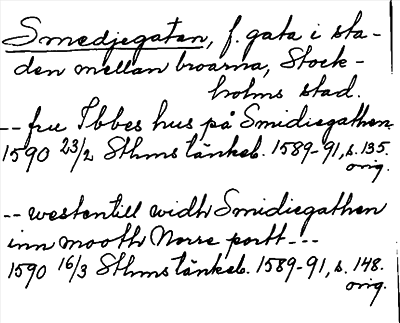 Smedjegatan, f. gata i sta-
den mellan broarna, Stock-
holms stad.
-- fru Ibbes hus på Smidiegathen
1590 23/2 Sthms tänkeb. 1589-91, s. 135.
orig.
-- westentill widh Smidiegathen
inn mooth Norre portt ---
1590 16/3 Sthms tänkeb. 1589-91, s. 148.
orig.